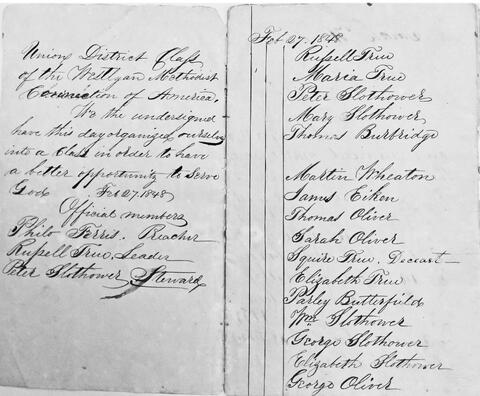 Union District Class
of the Wesleyan Methodist
Connection of America.
We the undersigned
have this day organized ourselves
into a Class in order to have
a better opportunity to serve
God Feb 27. 1848
Official members
Philo Ferris. Preacher
Russell True, Leader
Peter Slothower Steward
Feb 27. 1848
Russell True
Maria True
Peter Slothower
Mary Slothower
Thomas Burbridge
Martin Wheaton
James Eiken
Thomas Oliver
Sarah Oliver
Squire True. Deceast
Elizabeth True
Parley Butterfield
Wm Slothower
George Slothower
Elizabeth Slothower
George Oliver